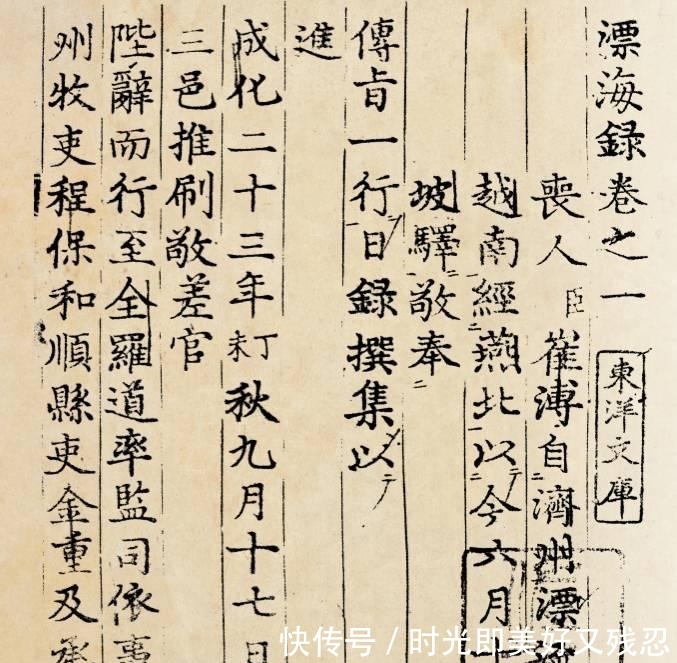 漂海録卷之一
東洋文庫
喪人臣崔溥自濟州漂
越南經燕北以今六月
坡驛敬奉
傳㫖一行日録撰集以
進
成化二十三年丁未秋九月十七日
三邑推刷敬差官
陛辭而行至全羅道率監司依事
州牧吏程保和順縣吏金重及承
快传号 / 时光即美好又残忍